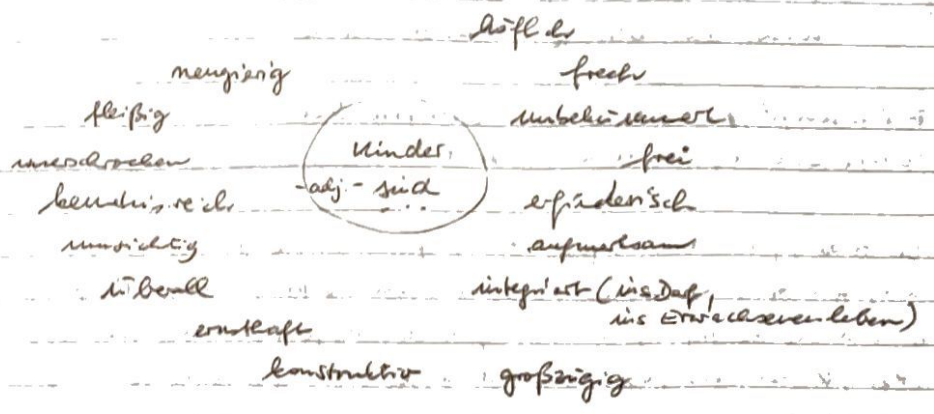 höflich
neugierig frech
fleißig unbekümmert
unerschrocken Kinder frei
kenntnisreich -adj- sind erfinderisch
umsichtig aufmerksam
überall integriert (ins Dorf,
ins Erwachsenenleben)
ernsthaft
konstruktiv großzügig